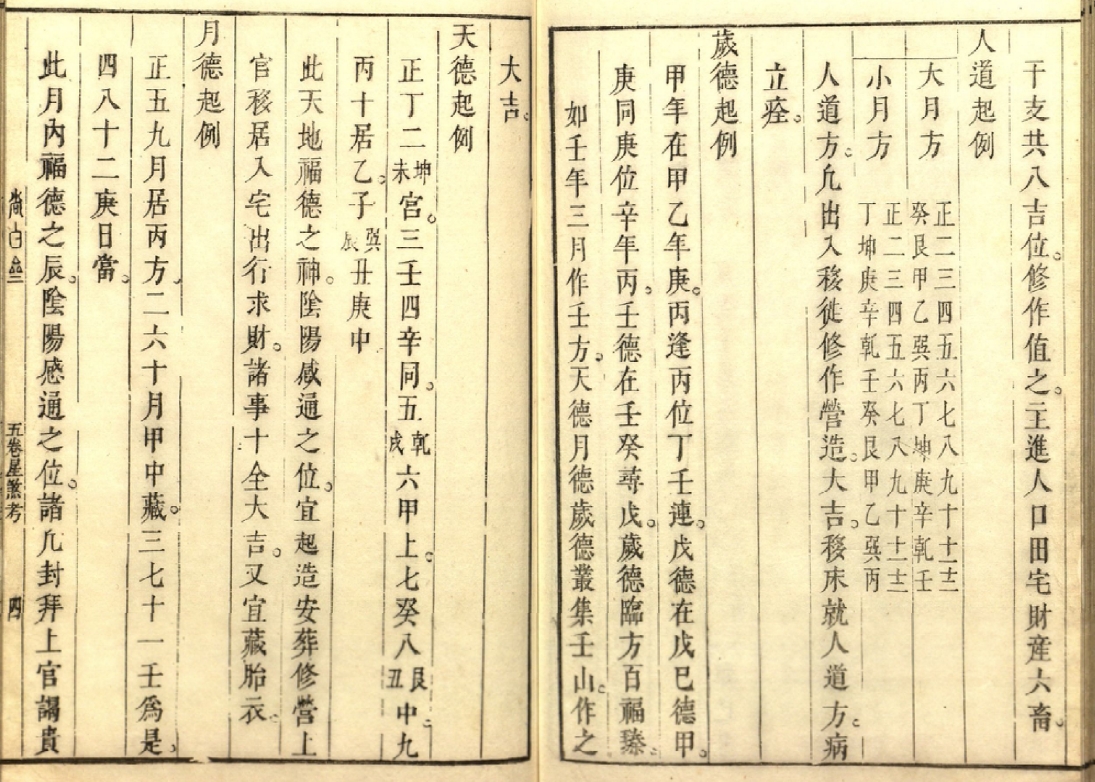 干支共八吉位。修作值之。主進人口田宅財産六畜。
人道起例
大月方 正二三四五六七八九十十一十二
癸艮甲乙巽丙丁坤庚辛乾壬
小月方 正二三四五六七八九十十一十二
丁坤庚辛乾壬癸艮甲乙巽丙
人道方。凢出入移徙修作營造。大吉。移床就人道方。病
立痊。
歲德起例
甲年在甲乙年庚。丙逢丙位丁壬連。戊德在戊巳德甲。
庚同庚位辛年丙。壬德在壬癸尋戊。歲德臨方百福臻。
如壬年三月作壬方。天德月德歲德叢集壬山。作之
大吉。
天德起例
正丁二坤未宮。三壬四辛同。五乾戌六甲上。七癸八艮丑中。九
丙十居乙。子巽辰丑庚中
此天地福德之神。陰陽感通之位。宜起造安葬修營上
官移居入宅出行求財。諸事十全大吉。又宜藏胎衣。
月德起例
正五九月居丙方。二六十月甲中藏。三七十一壬爲是。
四八十二庚日當。
此月內福德之辰。陰陽感通之位。諸凢封拜上官謁貴
五卷星煞考 四